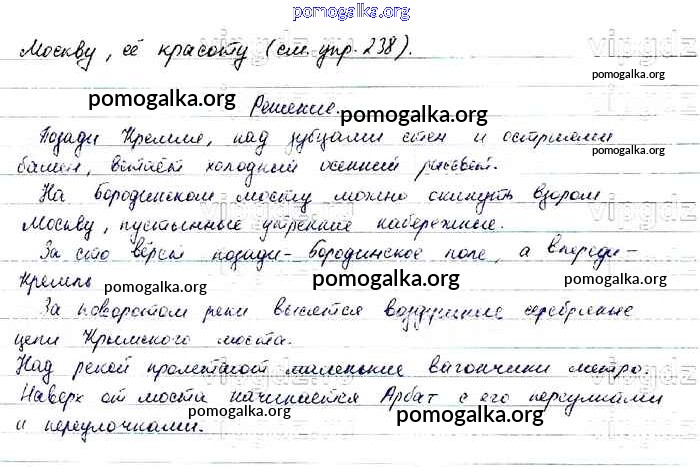 pomogalka.org
Москву, её красоту (см. упр. 238).
vipgdz
pomogalka.org
pomogalka.org Решение. pomogalka.org
Позади Кремля, над зубцами стен и остриями
pomogalka.org
башен, встаёт холодный осенний рассвет.
На Бородинском мосту можно окинуть взором
vipgdz
Москву, пустынные утренние набережные.
pomogalka.org pomogalka.org
За сто вёрст позади - бородинское поле, а впереди -
Кремль pomogalka.org pomogalka.org pomogalka.org
За поворотом реки высятся воздушные серебряные
цепи Крымского моста.
pomogalka.org
Над рекой пролетают маленькие вагончики метро.
vipgdz
Наверх от моста начинается Арбат с его переулками
pomogalka.org pomogalka.org pomogalka.org
и переулочками.
pomogalka.org